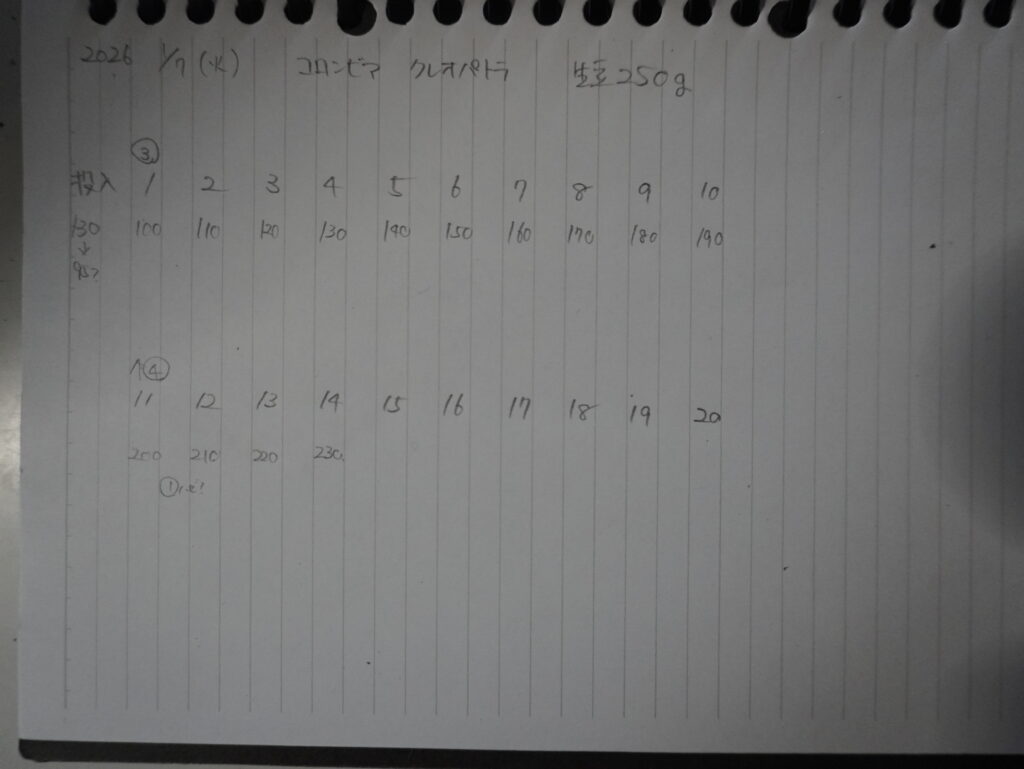 2026 1/7 (水) コロンビア クレオパトラ 生豆250g
③
投入 1 2 3 4 5 6 7 8 9 10
130 100 110 120 130 140 150 160 170 180 190
↓
95?
↑④
11 12 13 14 15 16 17 18 19 20
200 210 220 230
①ハゼ!